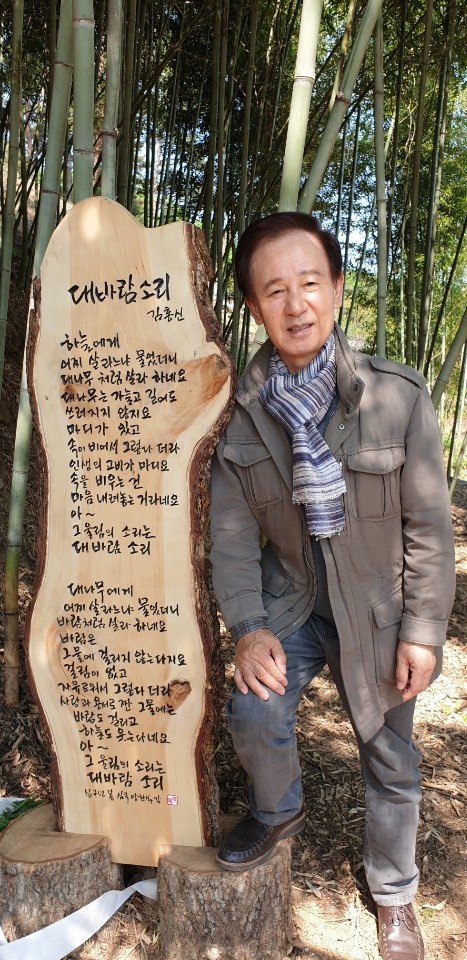 대바람소리
김홍신
하늘에게
어찌 살라느냐 물었더니
대나무 처럼 살라 하네요
대나무는 가늘고 길어도
쓰러지지 않지요
마디가 있고
속이 비어서 그렇다 더라
인생의 고비가 마디요
속을 비우는 건
마음 내려놓는 거라네요
아~
그 울림의 소리는
대바람 소리
대나무에게
어찌 살라느냐 물었더니
바람처럼 살라 하네요
바람은
그물에 걸리지 않는다지요
걸림이 없고
자유로워서 그렇다 더라
사랑과 용서로 짠 그물에는
바람도 걸리고
하늘도 웃는다네요
아~
그 울림의 소리는
대바람 소리